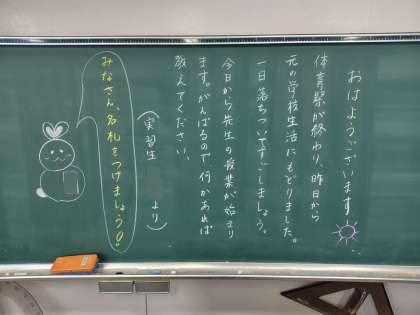 おはようございます
体育祭が終わり、昨日から
元の学校生活にもどりました。
一日落ちついてすごしましょう。
今日から先生の授業が始まり
ます。がんばるので、何かあれば
教えてください。
(実習生 より)
みなさん、名札をつけましょう!